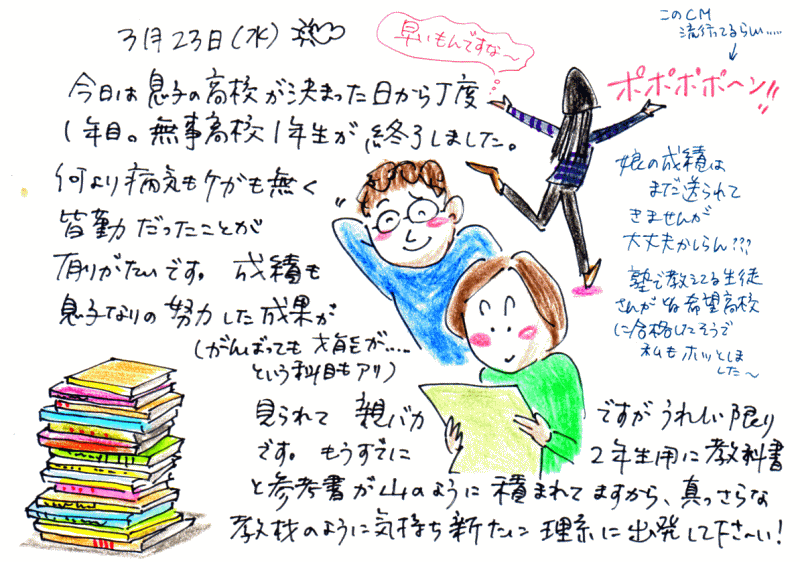 3月23日(水)
今日は息子の高校が決まった日から丁度
1年目。無事高校1年生が終了しました。
何より病気もケガも無く
皆勤だったことが
有りがたいです。成績も
息子なりの努力した成果が
(がんばっても才能が……
という科目もアリ)
見られて親バカですがうれしい限り
です。もうすでに2年生用に教科書
と参考書が山のように積まれてますから、真っさらな
教材のように気持ち新たに理系に出発して下さ〜い!
早いもんですな〜
このCM
流行ってるらしい……
ポポポポ〜ン!!
娘の成績は
まだ送られて
きませんが
大丈夫かしらん???
塾で教えてる生徒
さんが皆希望高校
に合格したそうで
私もホッとしま
した〜